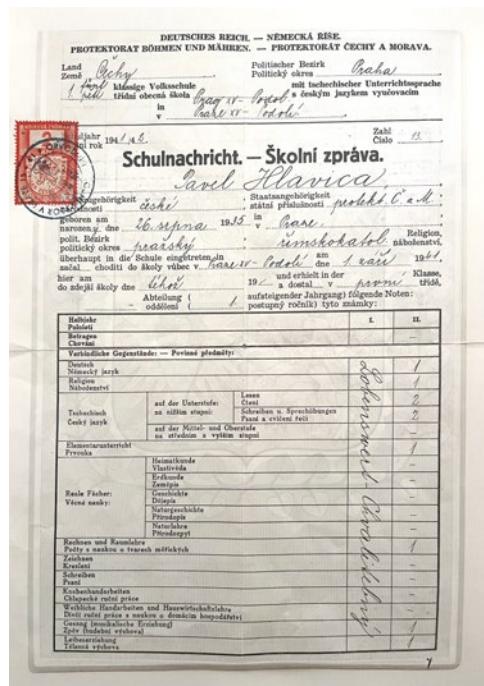 DEUTSCHES REICH. — NĚMECKÁ ŘÍŠE.
PROTEKTORAT BÖHMEN UND MÄHREN. — PROTEKTORÁT ČECHY A MORAVA.
Land Politischer Bezirk
Země Čechy Politický okres Praha
1. klassige Volksschule mit tschechischer Unterrichtssprache
pěti třídní obecná škola s českým jazykem vyučovacím
in Prag XV - Podol
v Praze XV - Podolí
Schuljahr 1941/42. Zahl
rok Číslo 13.
Schulnachricht. — Školní zpráva.
Pavel Hlavica,
Staatsangehörigkeit
české státní příslušnosti protekt. Č. a M.
geboren am in
narozený dne 26. srpna 1935 v Praze,
polit. Bezirk Religion,
politický okres pražský, římskokatol. náboženství,
überhaupt in die Schule eingetreten in am
začal choditi do školy vůbec v Praze XV - Podolí dne 1. září 1941
hier am und erhielt in der Klasse,
do zdejší školy dne téhož 19 a dostal v první třídě,
Abteilung ( aufsteigender Jahrgang) folgende Noten:
- oddělení ( 1. postupný ročník) tyto známky:
Halbjahr I. II.
Pololetí
Betragen
Chování -
Verbindliche Gegenstände: — Povinné předměty:
Deutsch
Německý jazyk 1
Religion
Náboženství 1
Tschechisch
Český jazyk
auf der Unterstufe:
na nižším stupni:
Lesen
Čtení 2
Schreiben u. Sprechübungen
Psaní a cvičení řeči 2
auf der Mittel- und Oberstufe
na středním a vyšším stupni -
Elementarunterricht
Prvouka 1
Reale Fächer:
Věcné nauky:
Heimatkunde
Vlastivěda -
Erdkunde
Zeměpis -
Geschichte
Dějepis -
Naturgeschichte
Přírodopis -
Naturlehre
Přírodozpyt -
Rechnen und Raumlehre
Počty s naukou o tvarech měřických 1
Zeichnen
Kreslení -
Schreiben
Psaní -
Knabenhandarbeiten
Chlapecké ruční práce -
Weibliche Handarbeiten und Hauswirtschaftslehre
Dívčí ruční práce s naukou o domácím hospodářství -
Gesang (musikalische Erziehung)
Zpěv (hudební výchova) 1
Leibeserziehung
Tělesná výchova 1
Lobenswert - Chvalitebný